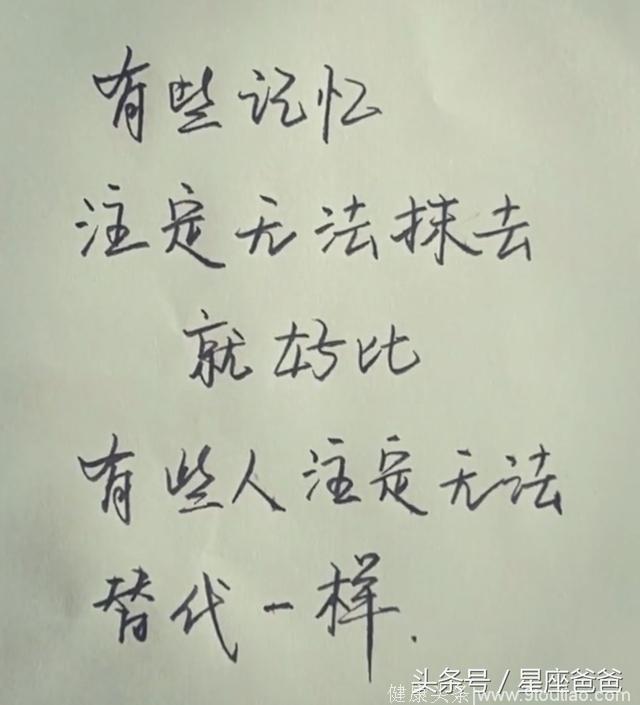 有些记忆
注定无法抹去
就好比
有些人注定无法
替代一样.
头条号/星座爸爸
健康头条 www.9toutiao.com